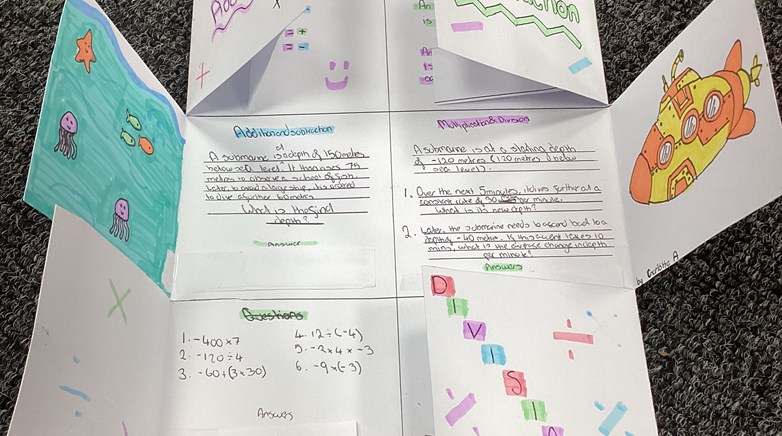 Addition and subtraction
A submarine is at a depth of 150 metres
below sea level. It then rises 75
metres to observe a school of fish.
Later, to avoid a large ship, it is ordered
to dive a further 60 metres
What is the final
depth?
Answer
Multiplication & Division
A submarine is at a starting depth
of -120 metres (120 metres below
sea level).
1. Over the next 5 minutes, it dives further at a
constant rate of 30 per minute.
What is its new depth?
2. Later, the submarine needs to ascend to a
depth of -40 metres. If this ascent takes 10
mins, what is the average change in depth
per minute?
Answers
by Carlotta A
Questions
1. -400 x 7
2. -120 ÷ 4
3. -60 + (3 x 30)
4. 12 ÷ (-4)
5. -2 x 4 x -3
6. -9 x (-3)
Answers
D
I
V
I
S
I